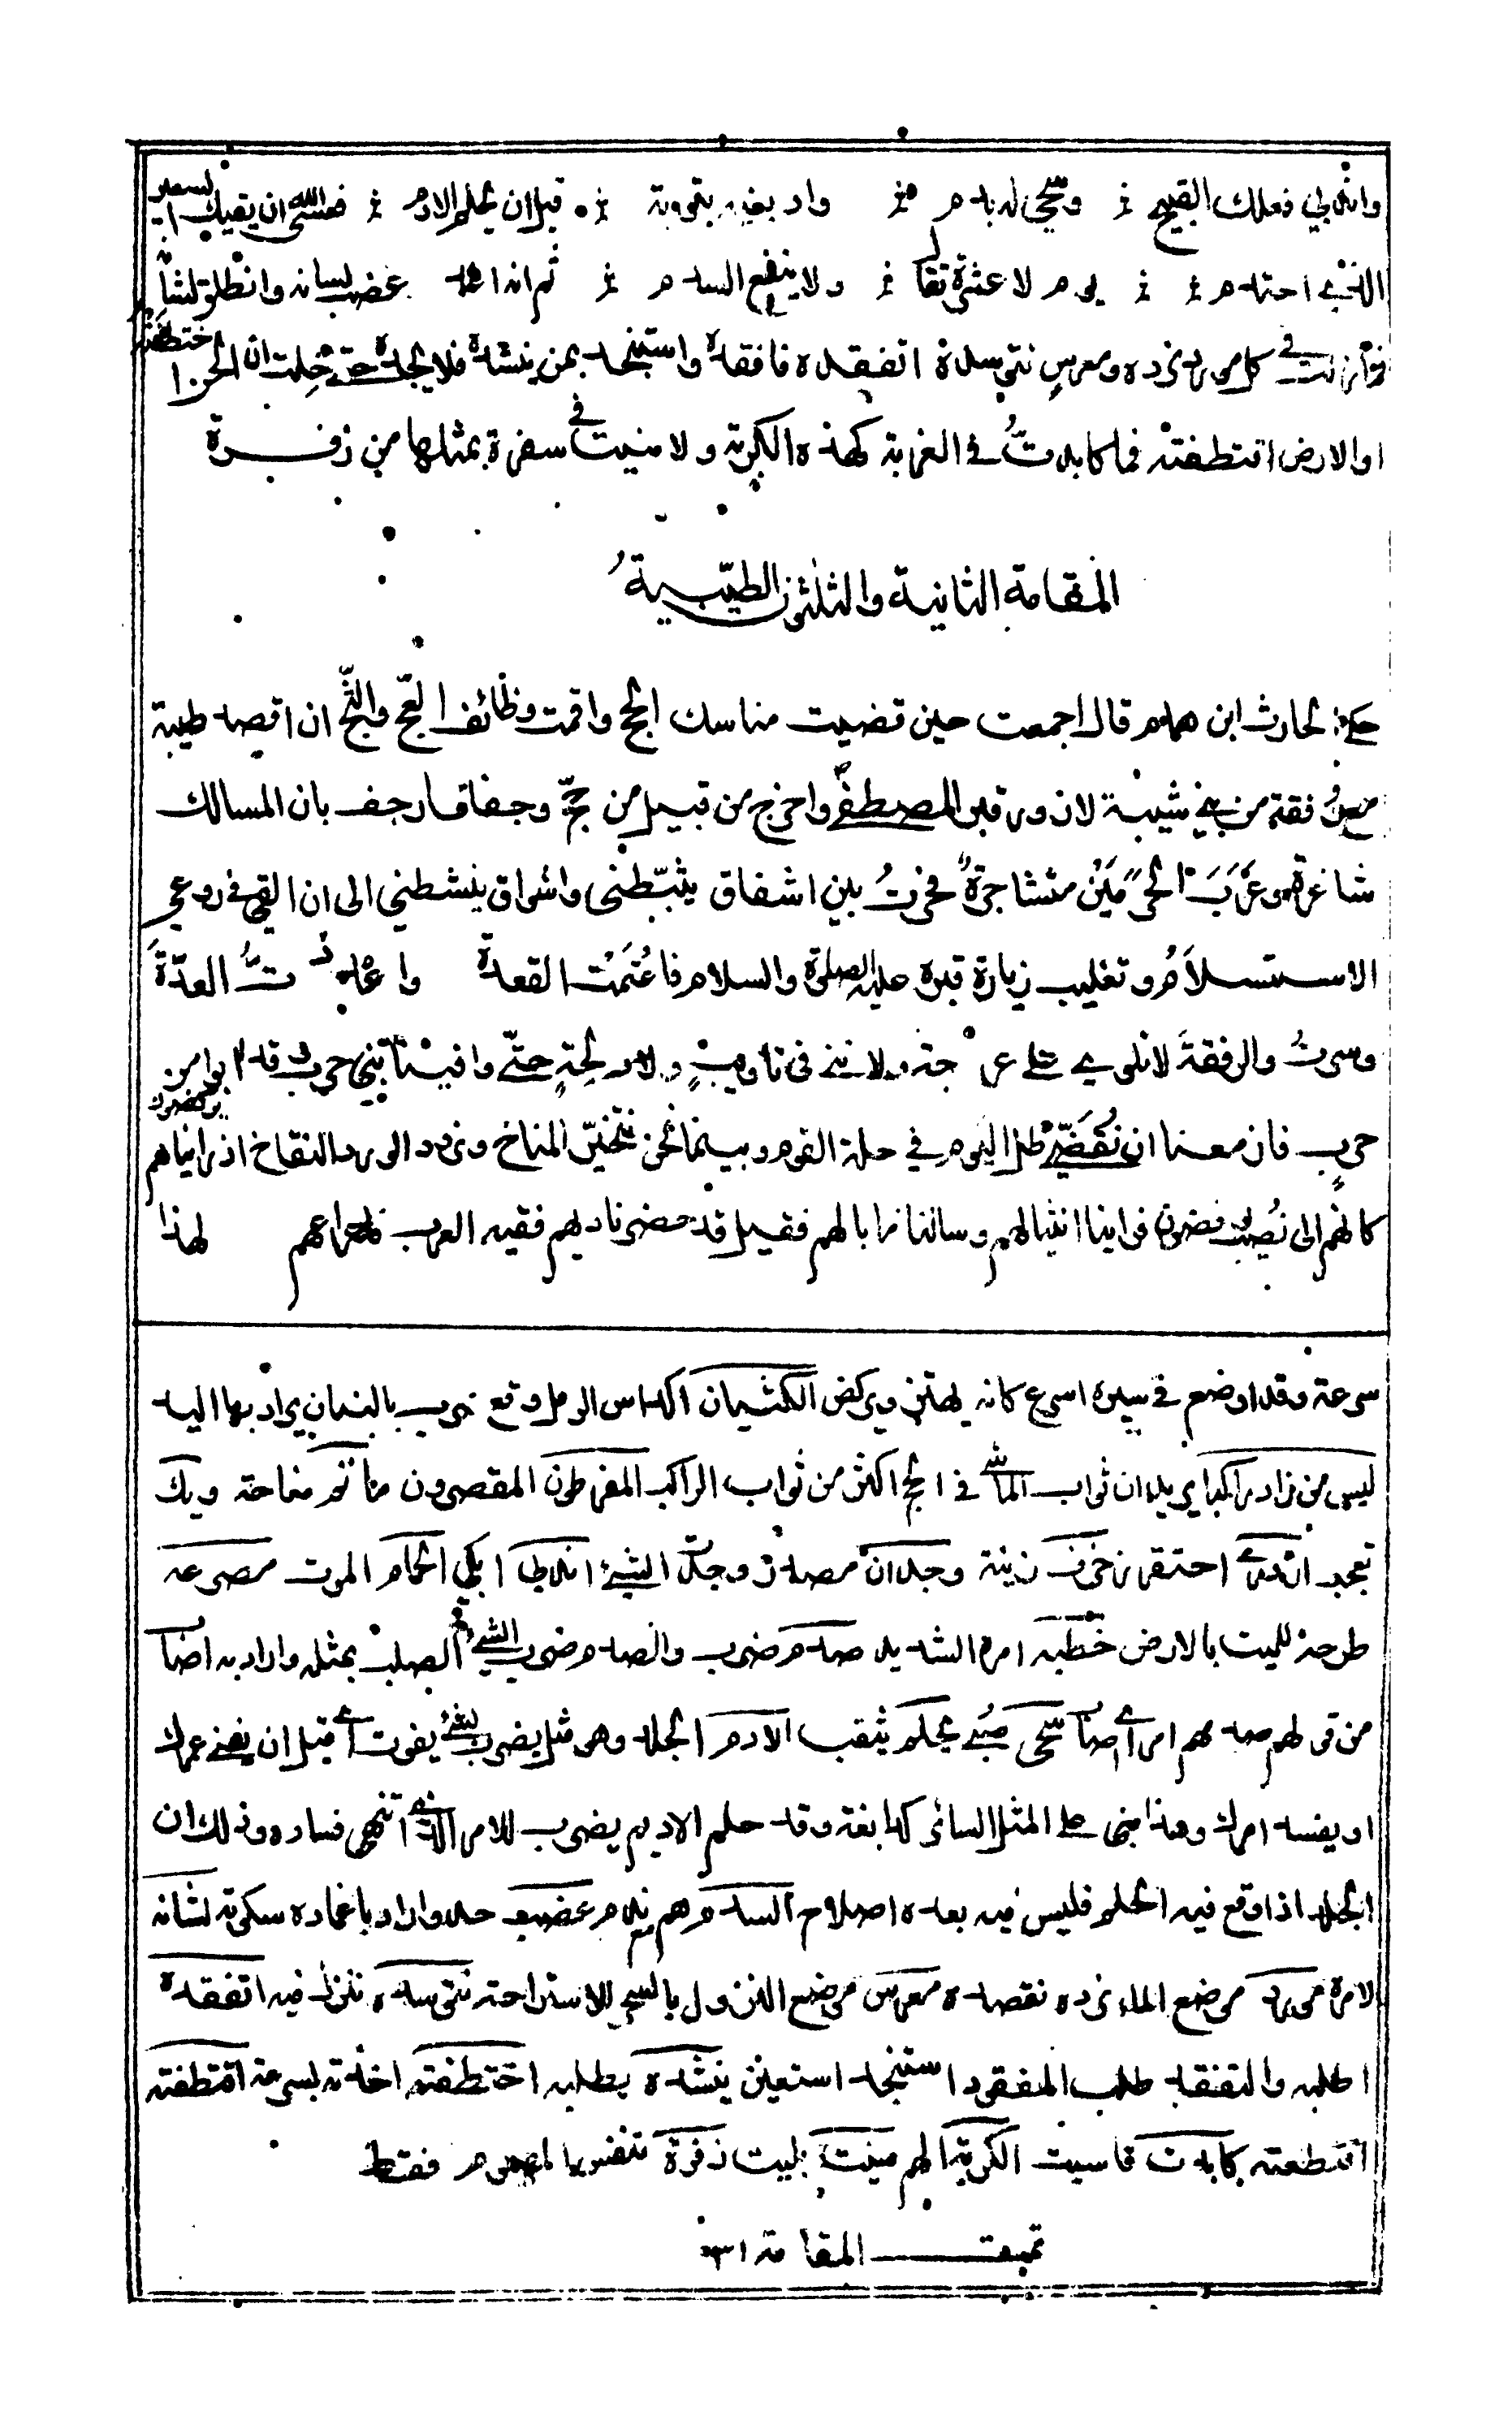 واندبي فعلك القبيح وسحي له بدم وادبغيه بتوبة قبل ان يحلم الادم فعسى الله ان يقيك السعير
الذي احتدم يوم لا عثرة تقال ولا ينفع السدم ثم انه اغمد عضب لسانه وانطلق لشانه
فما زلت في كل مورد نرده ومعرس نتوسده اتفقده فافقده واستنجد بمن ينشده فلا يجده حتى خلت ان الجن اختطفته
او الارض اقتطفته فما كابدت في الغربة كهذه الكربة ولا منيت في سفرة بمثلها من زفرة
المقامة الثانية والثلثون الطيبية
حكى الحارث ابن همام قال اجمعت حين قضيت مناسك الحج واقمت وظائف العج والثج ان اقصد طيبة
مع رفقة من بني شيبة لازور قبر المصطفى واخرج من قبيل من حج وجفا فارجف بان المسالك
شاغرة وعرب الحرمين متشاجرة فحرت بين اشفاق يثبطني واشواق ينشطني الى ان القي في روعي
الاستسلام وتغليب زيارة قبره عليه الصلوة والسلام فاعتمت القعدة واعددت العدة
وسرت والرفقة لا نلوي على عرجة ولا نني في تاويب ولا دلجة حتى وافينا بني حرب وقد ابوا من
حرب فازمعنا ان نقضي ظل اليوم في حلة القوم وبينما نحن نتخير المناخ ونرود الورد النقاخ اذ رايناهم يركضون
كانهم الى نصب يوفضون فرابنا انثيالهم وسالنا ما بالهم فقيل قد حضر ناديهم فقيه العرب فاهراعهم لهذا
سرعة وقد اوضع في سيره اسرع كانه يهتز ويركض الكثبان اكداس الرمل وقع ضرب بالبنان يراد بها اليد
ليس من زار راكبا يريد ان ثواب الماشي في الحج اكثر من ثواب الراكب المفرطون المقصرون ماتم مناحة ويك
تعجب ازدري احتقر زخرف زينة وجدان مصدر وجد الشيء اندبي ابكي الحمام الموت مصرعه
طرحة للميت بالارض خطبه امره الشديد صدم ضرب والصدم ضرب الشيء الصلب بمثله واراد به اصاب
من قولهم صدمهم امر اي اصاب سحي صبي يحلم يثقب الادم الجلد وهو مثل يضرب لشيء يفوت اي قبل ان يفنى عمرك
او يفسد امرك وهذا مبني على المثل السائر كدابغة وقد حلم الاديم يضرب للامر الذي انتهى فساده وذلك ان
الجلد اذا وقع فيه الحلم فليس فيه بعده اصلاح السدم هم ندم عضب حد واراد باغماده سكوته لشانه
لامره مورد موضع الماء نرده نقصده معرس موضع النزول بالسحر للاستراحة نتوسده ننزل فيه اتفقده
اطلبه والتفقد طلب المفقود استنجد استعين ينشده يطلبه اختطفته اخذته بسرعة اقتطفته
اقتطعته كابدت قاسيت الكربة الهم منيت بليت زفرة تنفس المهموم فقط
تمت المقامة ٣١